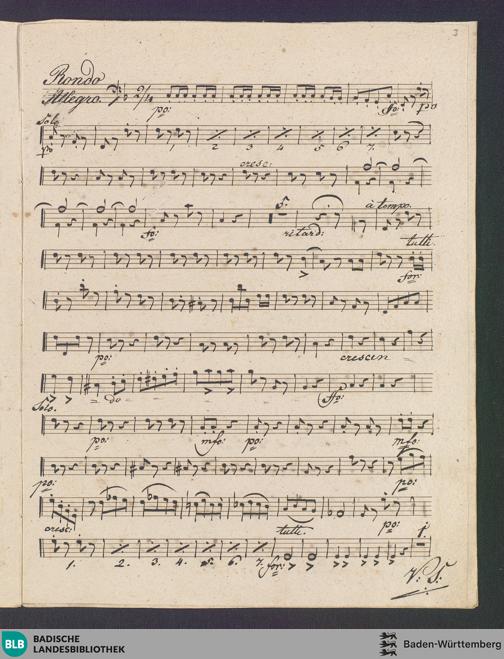 3
Rondo
Allegro. 2/4
po: ffo: po
Solo
po 1 2 3 4 5 6 7.
cresc:
à tempo.
fo: ritard:
tutti
for:
po: crescen
= do = ffo:
Solo.
po: mfo: po: mfo:
po: po:
cresc: tutti. po:
1.
1. 2. 3. 4. 5. 6. 7. for:
V: S:
BLB BADISCHE
LANDESBIBLIOTHEK
Baden-Württemberg